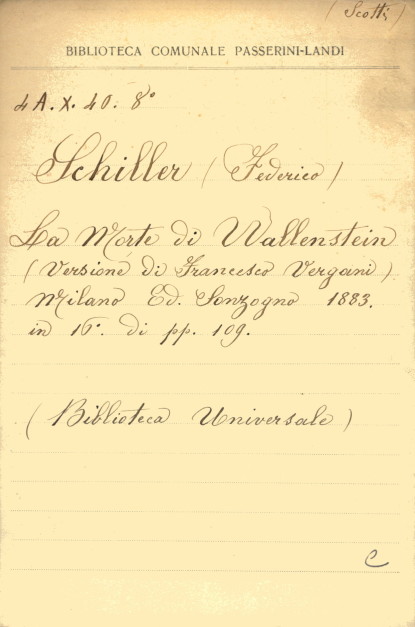 (Scotti)
BIBLIOTECA COMUNALE PASSERINI-LANDI
4 A. X. 40. 8°
Schiller (Federico)
La Morte di Wallenstein
(Versione di Francesco Vergani)
Milano Ed. Sonzogno 1883.
in 16°. di pp. 109.
(Biblioteca Universale)
C